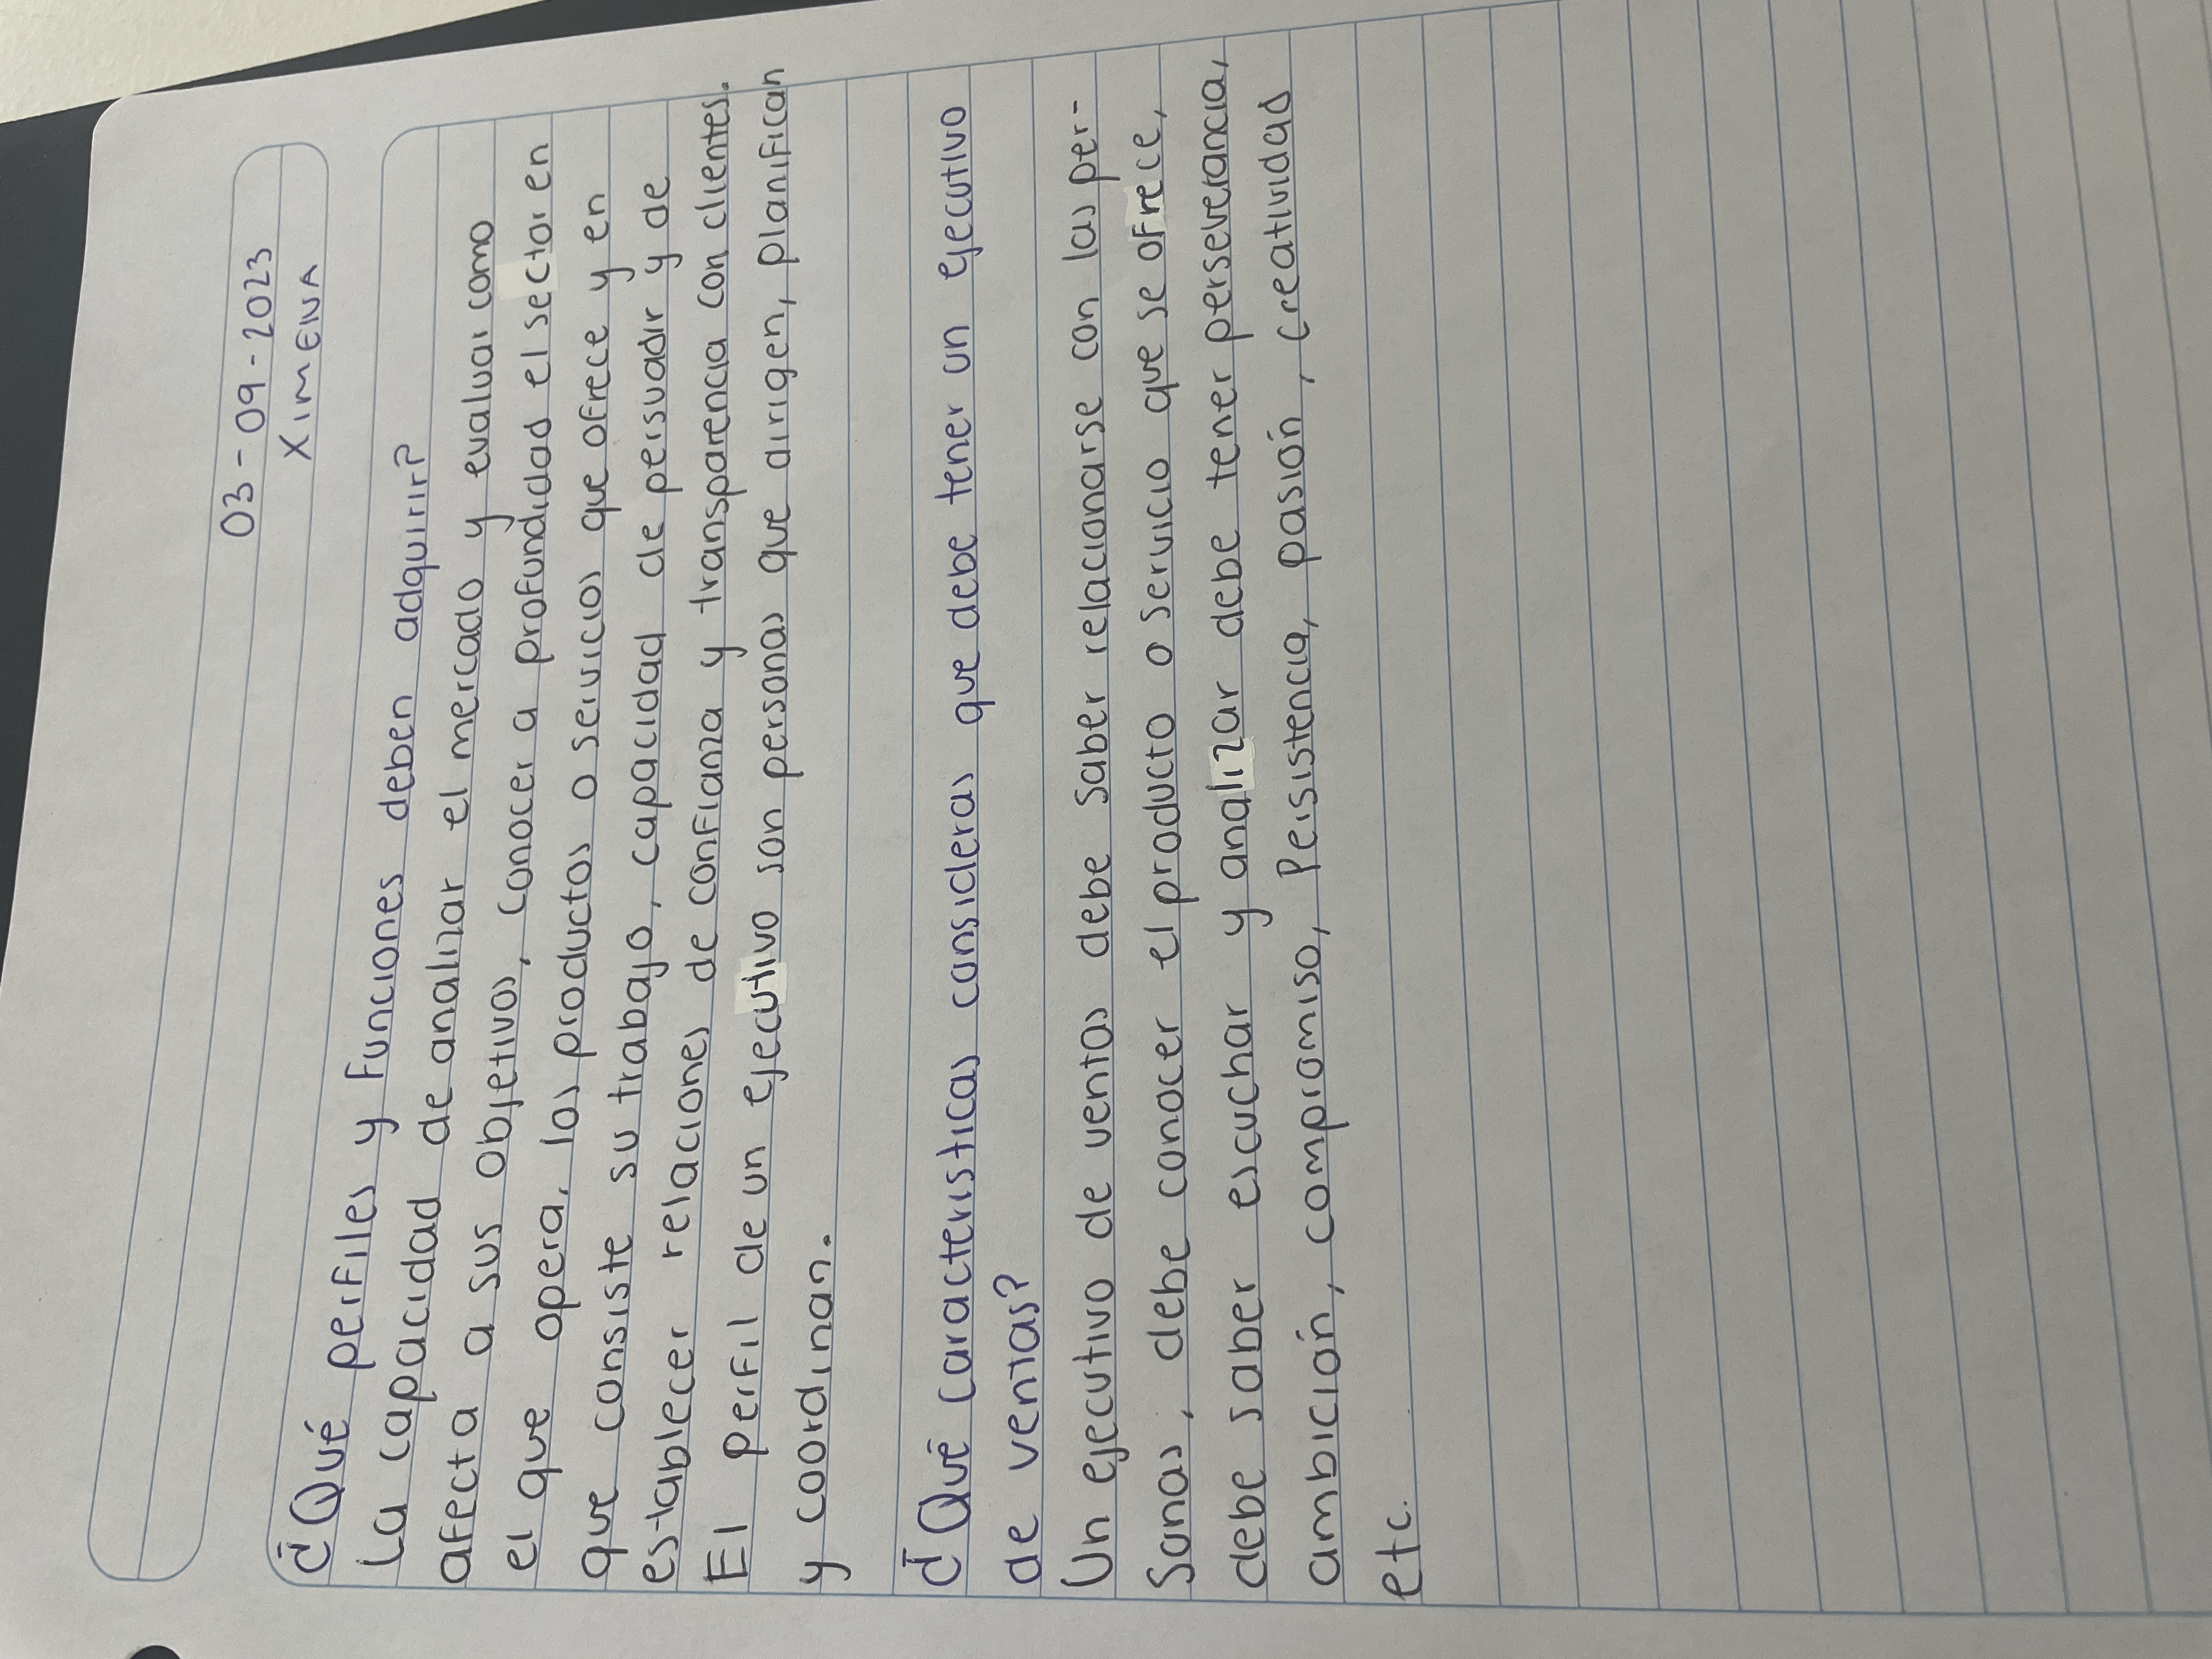 03-09-2023
XIMENA
¿Qué perfiles y funciones deben adquirir?
La capacidad de analizar el mercado y evaluar como
afecta a sus objetivos, conocer a profundidad el sector en
el que opera, los productos o servicios que ofrece y en
que consiste su trabajo, capacidad de persuadir y de
establecer relaciones de confianza y transparencia con clientes.
El perfil de un ejecutivo son personas que dirigen, planifican
y coordinan.
¿Qué características consideras que debe tener un ejecutivo
de ventas?
Un ejecutivo de ventas debe saber relacionarse con las per-
sonas, debe conocer el producto o servicio que se ofrece,
debe saber escuchar y analizar debe tener perseverancia,
ambición, compromiso, Persistencia, pasión, creatividad
etc.